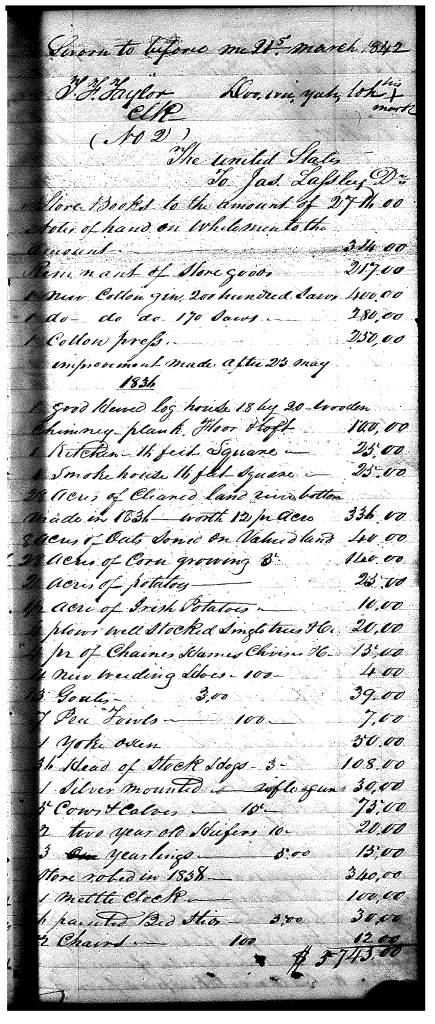 Sworn to before me 21st march 1842
T. F. Taylor
Clk
his
mark
(No 2)
The united States
To Jas. Lassley Dr
Store Books to the amount of 27
notes of hand on White men to the
amount — 314.00
Remnant of Store goods 217.00
1 new Cotton gin, 200 hundred Saws 400,00
1 do - do do 170 Saws — 280,00
1 Cotton press — 250,00
improvement made after 23 may
1836
1 good Hewed log house 18 by 20 wooden
chimney plank Floor & loft 100,00
1 Kitchen 16 feet Square — 25.00
1 Smoke house 16 feet square — 25.00
28 Acres of Cleared land river bottom
made in 1836 — worth 12 pr Acre 336,00
8 acres of Oats Sowed on Valued land 40.00
28 Acres of Corn growing 5 140.00
2 acres of potatoes — 25.00
1/2 Acre of Irish Potatoes — 10.00
4 plows well Stocked Singletrees &c. 20,00
4 pr of Chaines Hames 15.00
4 new weeding Hoes - 100 - 4.00
13 Goats - 3,00 39.00
7 Pea Fowls — 100 — 7,00
1 Yoke Oxen 50,00
36 Head of Stock Hogs - 3 - 108.00
1 Silver mounted rifle gun 30,00
5 Cows & Calves — 15 — 75,00
2 two year old Heifers 10 - 20,00
3 yearlings — 5.00 15,00
Store robed in 1838 — 340,00
1 Mettle Clock — 100,00
6 painted Bed Steds — 5.00 30,00
12 Chairs — 100 12.00
$ 5743.00